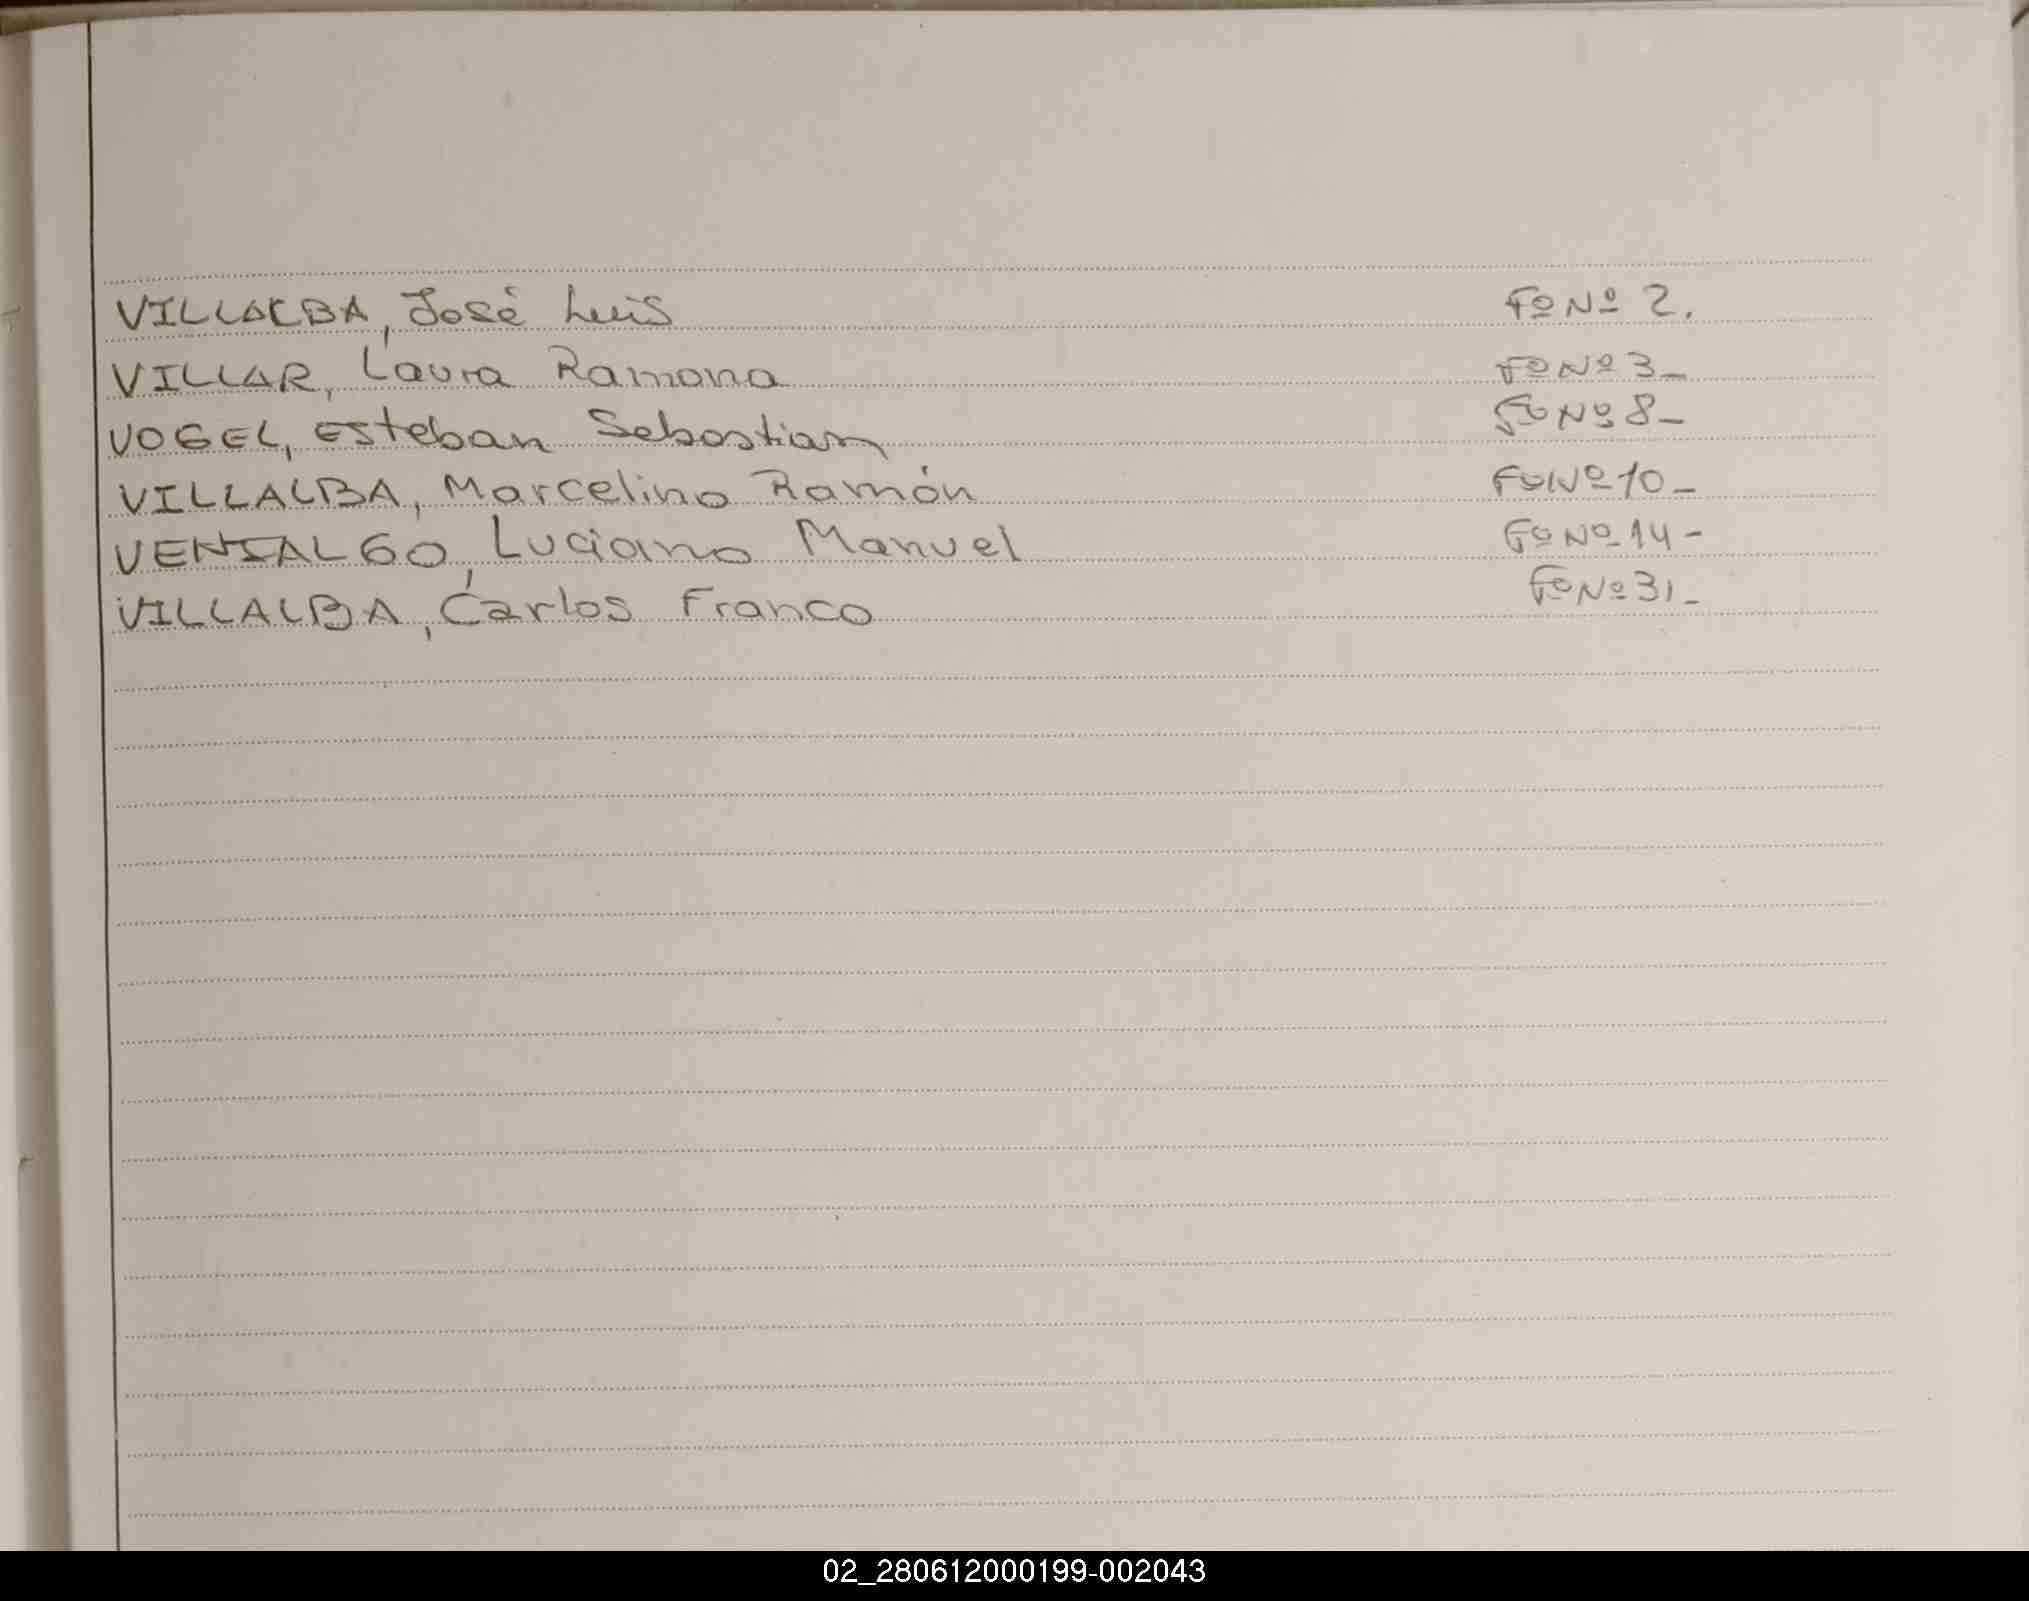 VILLALBA, José Luis Fº Nº 2.
VILLAR, Laura Ramona Fº Nº 3_
VOGEL, Esteban Sebastian Fº Nº 8_
VILLALBA, Marcelino Ramón Fº Nº 10_
VENIALGO, Luciano Manuel Fº Nº 14-
VILLALBA, Carlos Franco Fº Nº 31_
02_280612000199-002043